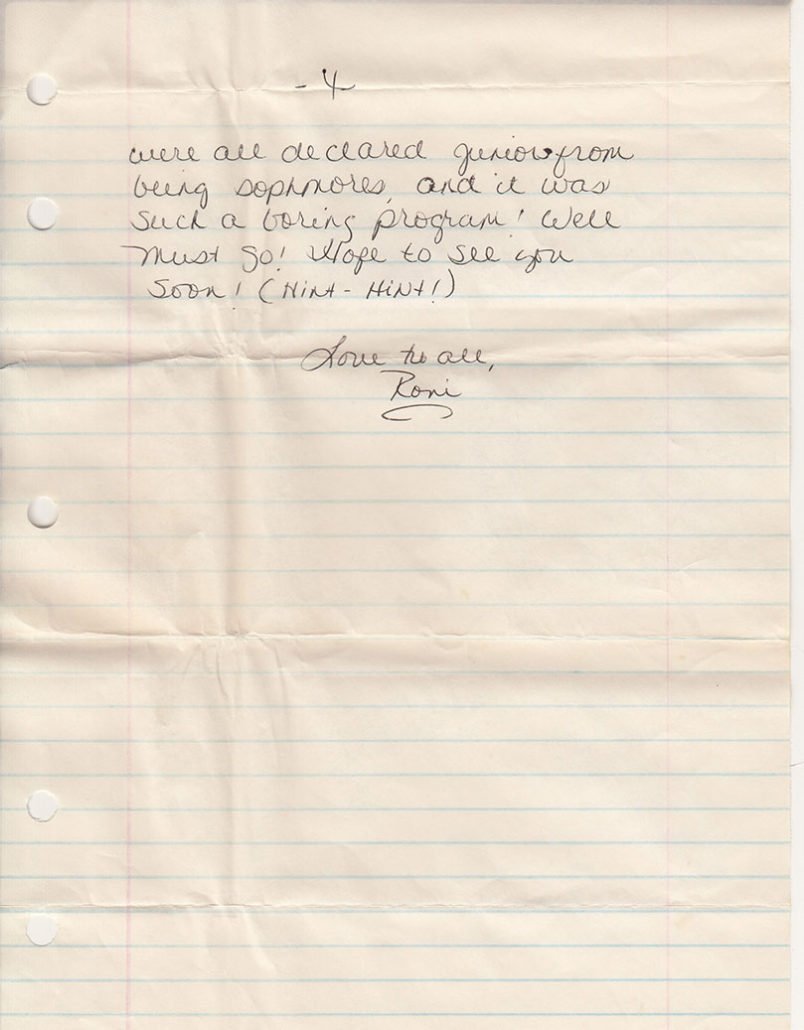 - 4 -
were all declared juniors from
being sophmores, and it was
such a boring program! Well
must go! Hope to see you
soon! (Hint - Hint!)
Love to all,
Roni